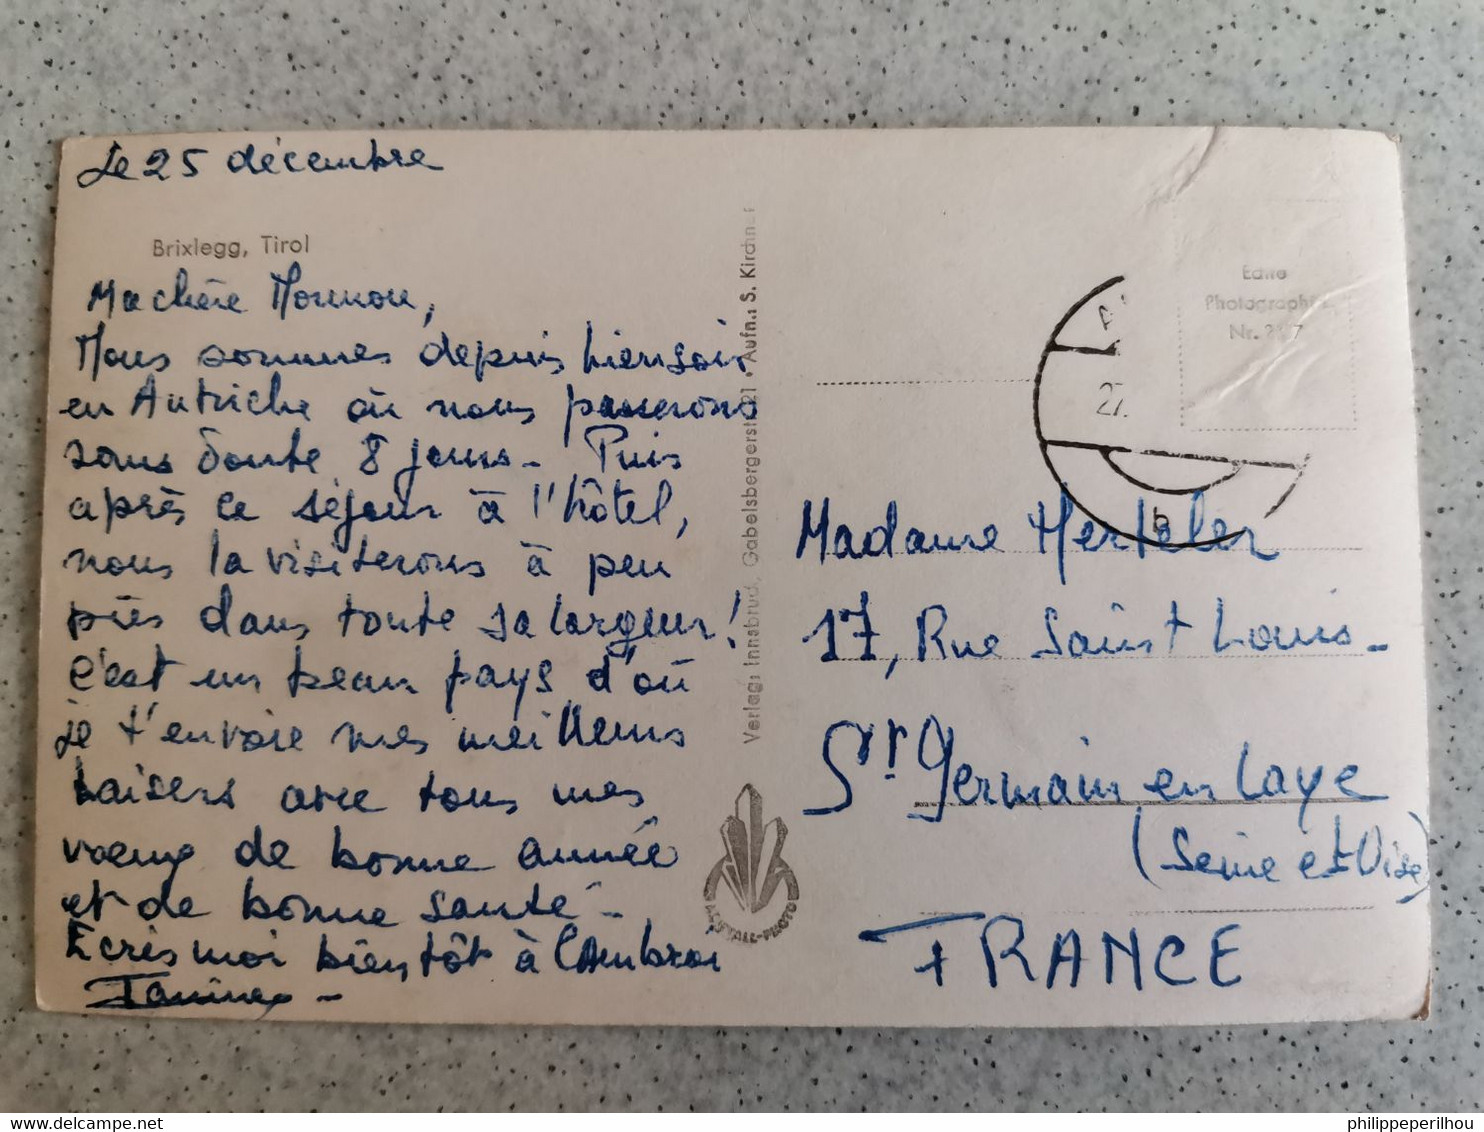 Le 25 décembre
Brixlegg, Tirol
Ma chère Mounou,
Nous sommes depuis hier soir
en Autriche où nous passerons
sans doute 8 jours - Puis
après ce séjour à l'hôtel,
nous la visiterons à peu
près dans toute sa largeur !
C'est un beau pays d'où
je t'envoie mes meilleurs
baisers avec tous mes
voeux de bonne année
et de bonne santé -
Ecris moi bientôt à l'Ambroi
Janine -
Verlag: Innsbruck, Gabelsbergerstr. 21 • Aufn.: S. Kirchner
KRISTALL-PHOTO
Echte
Photographie
Nr.
27.
b
Madame Herteler
17, Rue Saint Louis -
St Germain en Laye
(Seine et Oise)
FRANCE
delcampe.net
philippeperilhou